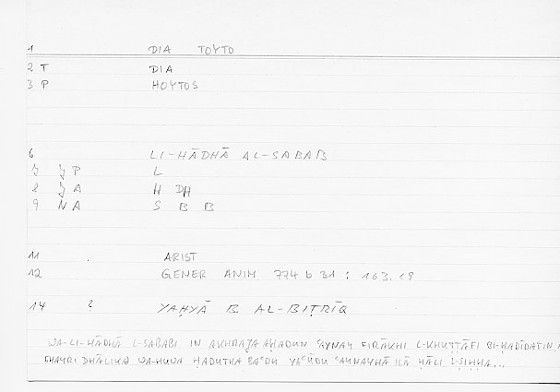 1 DIA TOYTO
2 T DIA
3 P HOYTOS
6 LI-HĀDHĀ AL-SABAB
7 P L
8 A H DH
9 NA S B B
11 ARIST
12 GENER ANIM 774 b 31 : 163.19
14 2 YAḤYĀ B AL-BIṬRĪQ
WA-LI-HĀDHĀ L-SABABI IN AKHRAJA AḤADUN ʿAYNAY FIRĀKHI L-KHUṬṬĀFI BI-ḤADĪDATIN
GHAYRI DHĀLIKA WA-HUWA ḤADUTHA BAʿDU YAʿŪDU ILĀ ḤĀLI L-ṢIḤḤA...